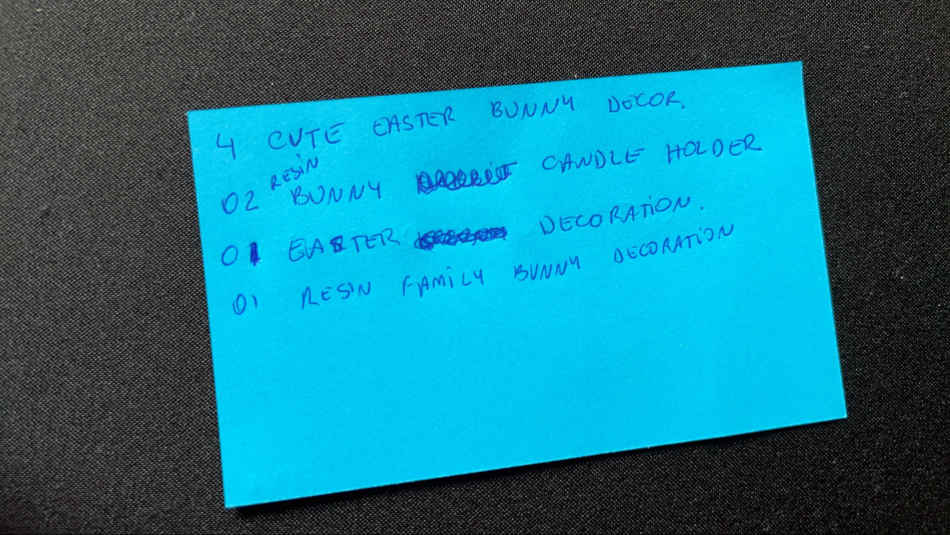 4 CUTE EASTER BUNNY DECOR.
02 RESIN BUNNY CANDLE HOLDER
01 EASTER DECORATION.
01 RESIN FAMILY BUNNY DECORATION